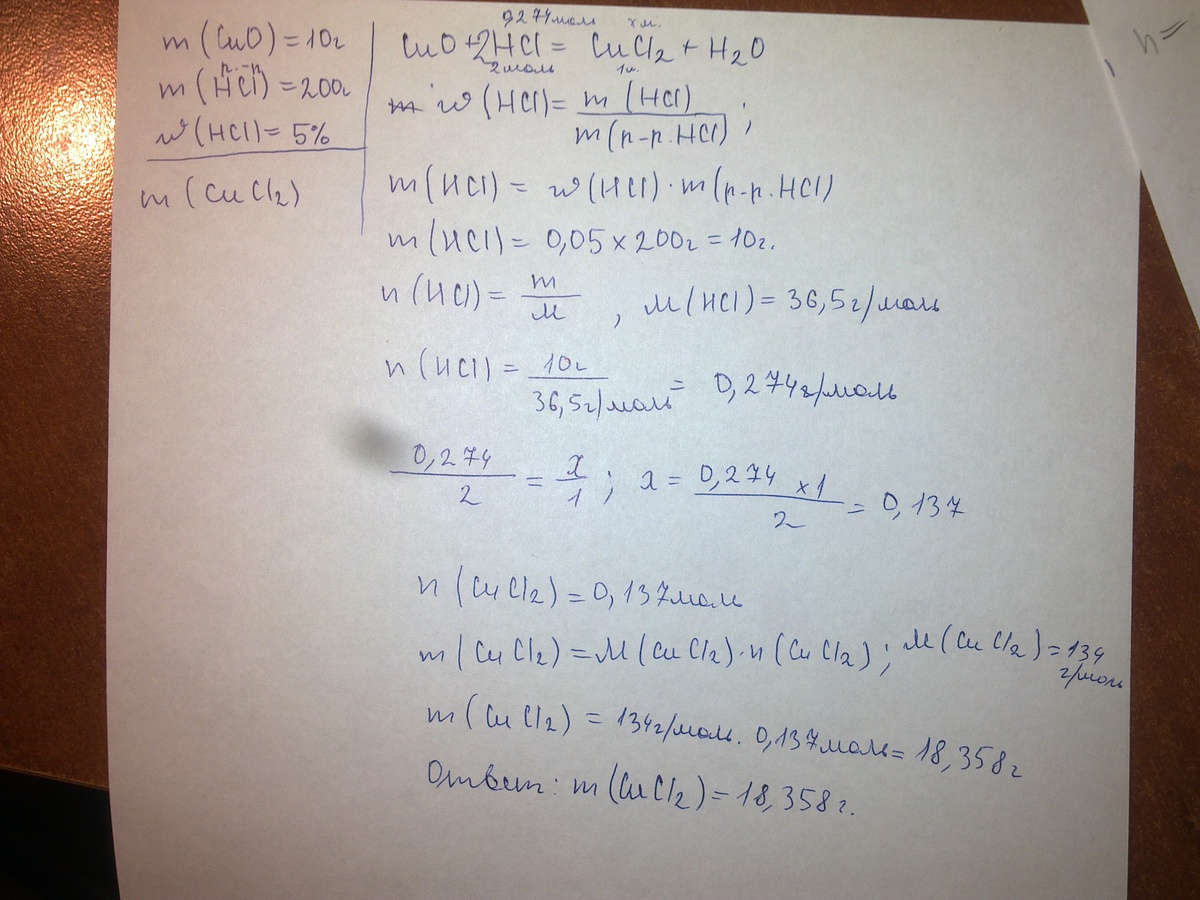 m (CuO) = 10г
m (HCl) = 200г
р.-р
w (HCl) = 5%
m (CuCl₂)
0,274моль х м.
CuO + 2HCl = CuCl₂ + H₂O
2моль 1м.
w (HCl) = m (HCl) / m (р-р. HCl) ;
m (HCl) = w (HCl) · m (р-р. HCl)
m (HCl) = 0,05 × 200г = 10г.
n (HCl) = m / M , M (HCl) = 36,5г/моль
n (HCl) = 10г / 36,5г/моль = 0,274г/моль
0,274 / 2 = x / 1 ; x = 0,274 × 1 / 2 = 0,137
n (CuCl₂) = 0,137моль
m (CuCl₂) = M (CuCl₂) · n (CuCl₂) ; M (CuCl₂) = 134 г/моль
m (CuCl₂) = 134г/моль · 0,137моль = 18,358г
Ответ: m (CuCl₂) = 18,358г.
n =